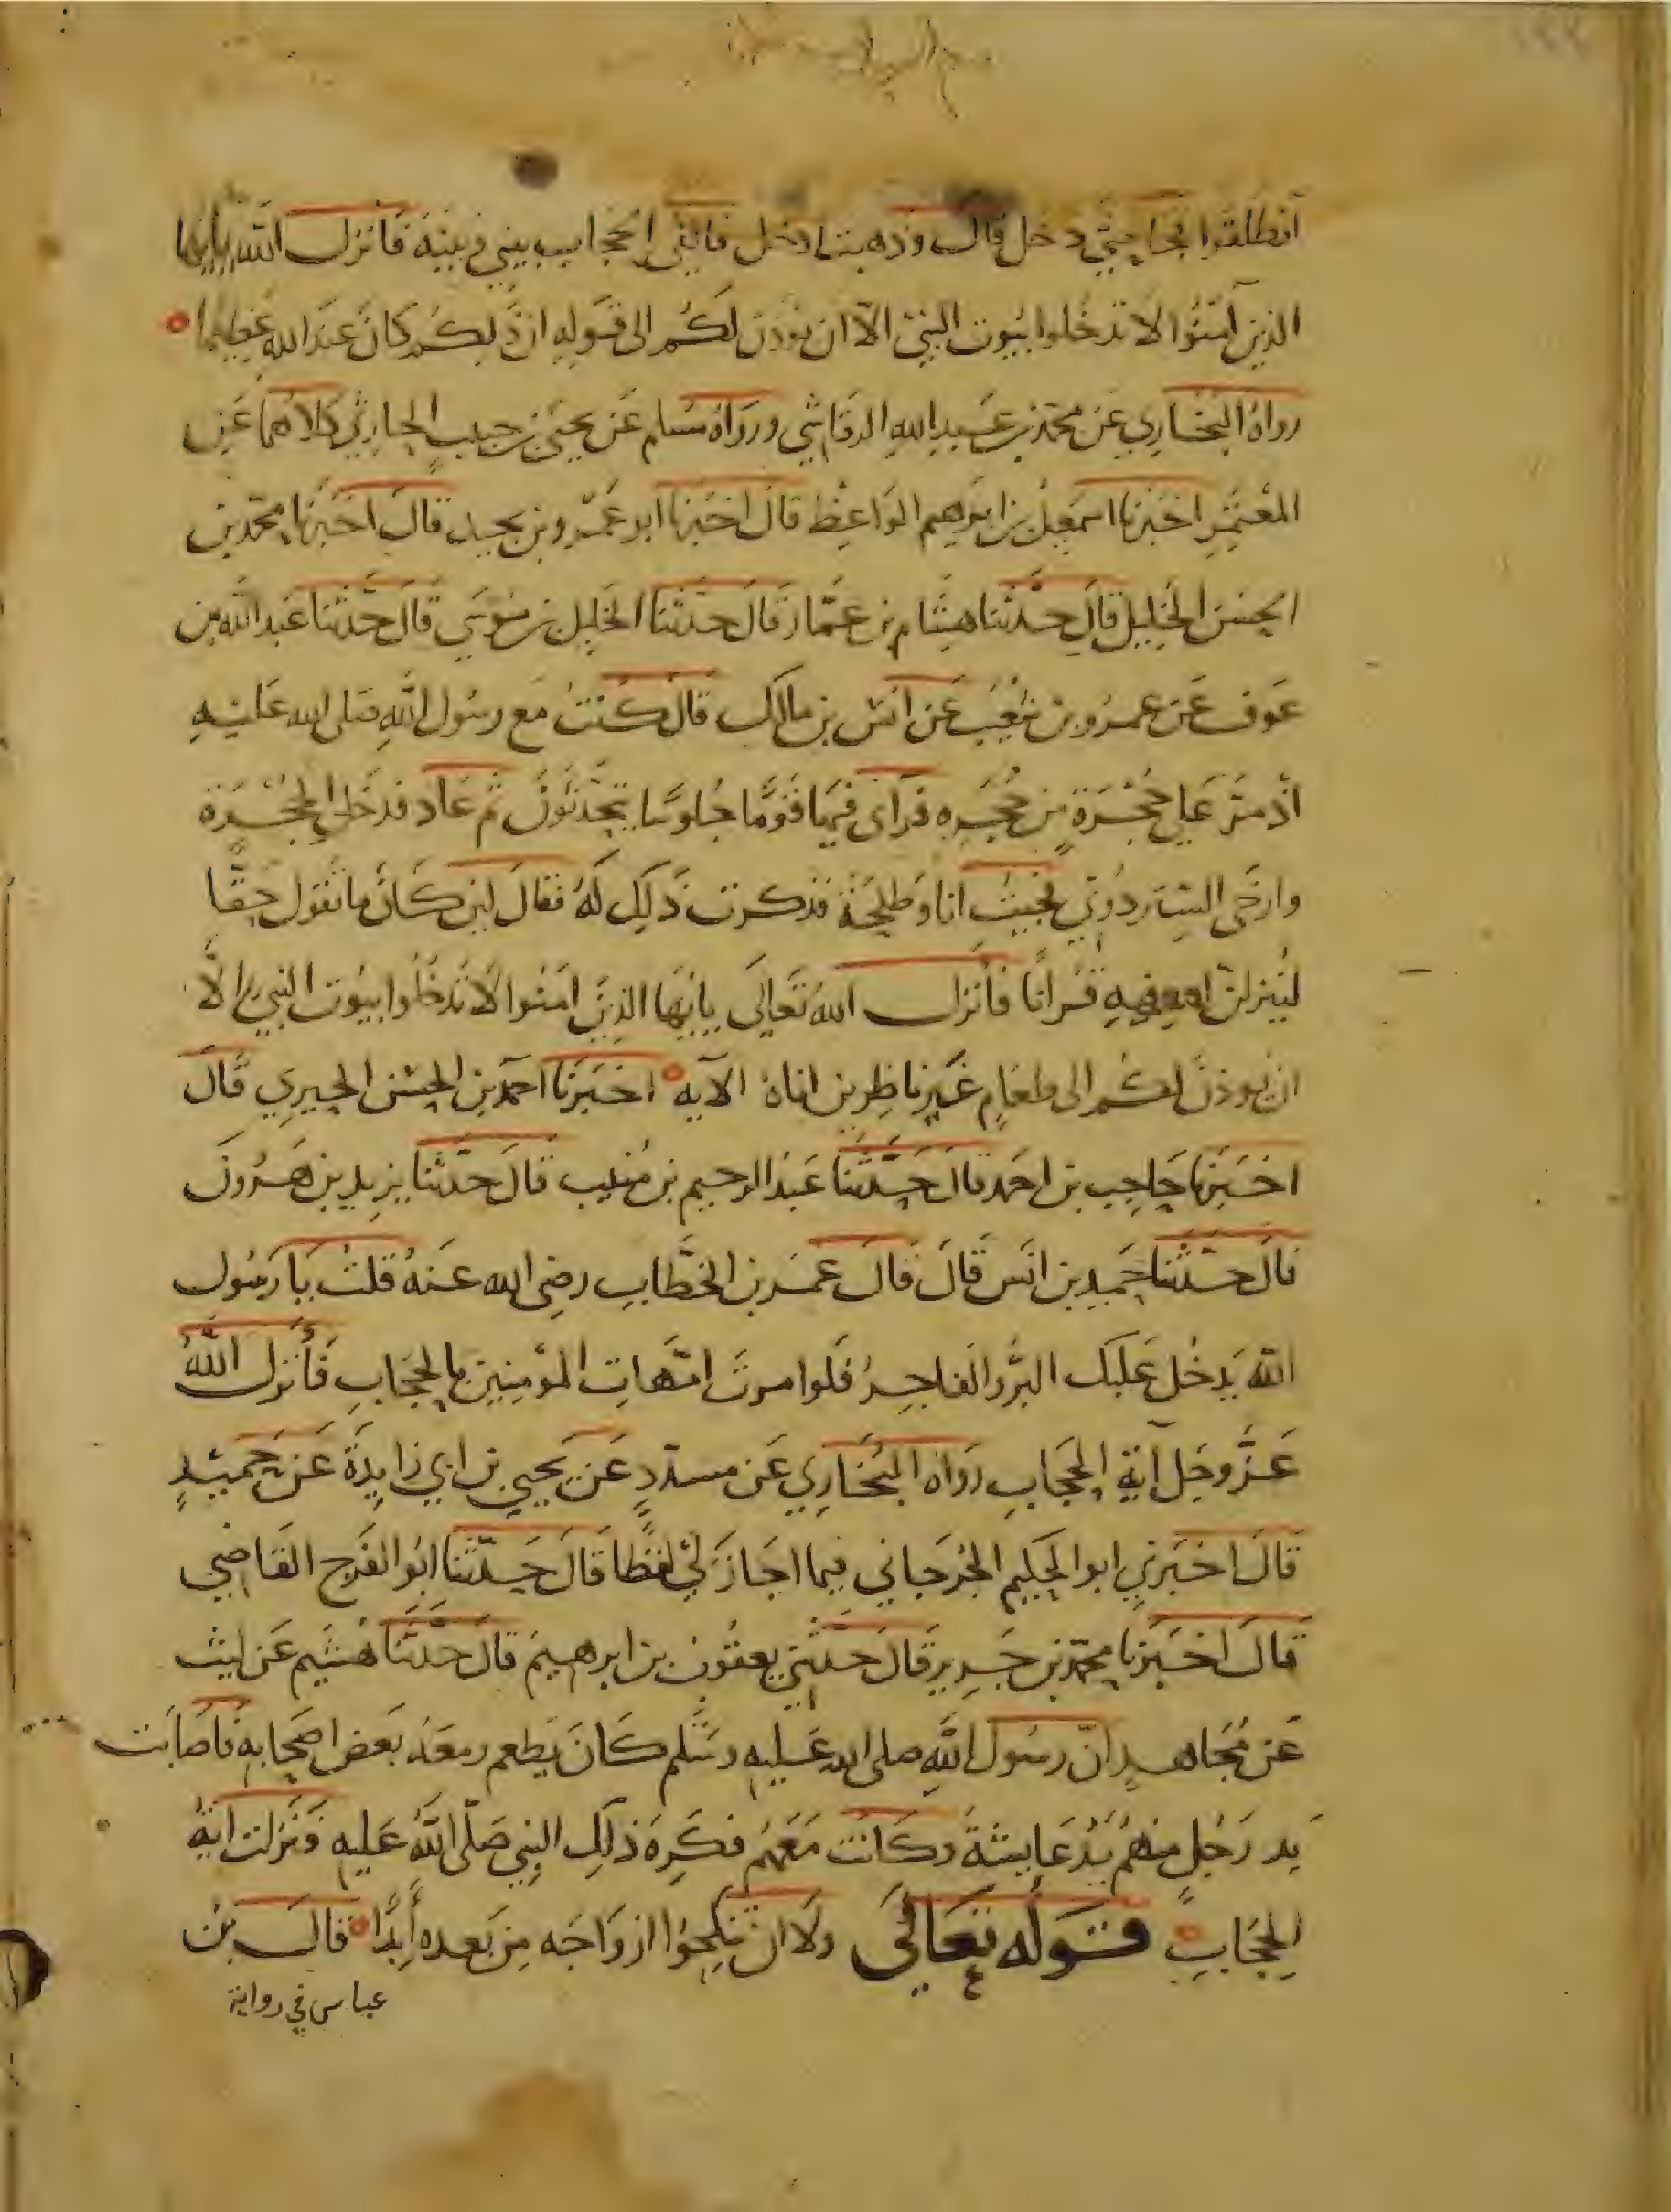 انطلقوا فجا حتى دخل قال وذهبت ادخل فالقى الحجاب بيني وبينه فانزل الله يايها
الذين آمنوا لا تدخلوا بيوت النبي الا ان يوذن لكم الى قوله ان ذلكم كان عند الله عظيما
رواه البخاري عن محمد بن عبيد الله الرقاشي ورواه مسلم عن يحيى بن حبيب الحارثي كلاهما عن
المعتمر اخبرنا اسمعيل بن ابراهيم الواعظ قال اخبرنا ابو عمرو بن بجيد قال اخبرنا محمد بن
الحسن الخليل قال حدثنا هشام بن عمار قال حدثنا الخليل بن موسى قال حدثنا عبد الله بن
عوف عن عمرو بن شعيب عن انس بن مالك قال كنت مع رسول الله صلى الله عليه
اذ مر على حجرة من حجره فرآى فيها قوما جلوسا يتحدثون ثم عاد فدخل الحجرة
وارخى الستر دوني فجيت انا وطلحة فذكرت ذلك له فقال لين كان ما تقول حقا
لينزلن الله فيه قرانا فانزل الله تعالى يايها الذين امنوا لا تدخلوا بيوت النبي الا
ان يوذن لكم الى طعام غير ناظرين اناه الآيه اخبرنا احمد بن الحسن الحيري قال
اخبرنا حاجب بن احمد قال حدثنا عبد الرحيم بن منيب قال حدثنا يزيد بن هرون
قال حدثنا حميد بن انس قال قال عمر بن الخطاب رضى الله عنه قلت يا رسول
الله يدخل عليك البر والفاجر فلو امرت امهات المؤمنين بالحجاب فأنزل الله
عز وجل آية الحجاب رواه البخاري عن مسدد عن يحيى بن ابي زايدة عن حميد
قال اخبرني ابو الحكيم الجرجاني فيما اجاز لي لفظا قال حدثنا ابو الفرج القاضي
قال اخبرنا محمد بن جرير قال حدثني يعقوب بن ابرهيم قال حدثنا هشيم عن ليث
عن مجاهد ان رسول الله صلى الله عليه وسلم كان يطعم ومعه بعض اصحابه فاصابت
يد رجل منهم يد عايشة وكانت معهم فكره ذلك النبي صلى الله عليه فنزلت اية
الحجاب قوله تعالى ولا ان تنكحوا ازواجه من بعده أبدا قال بن
عباس في رواية